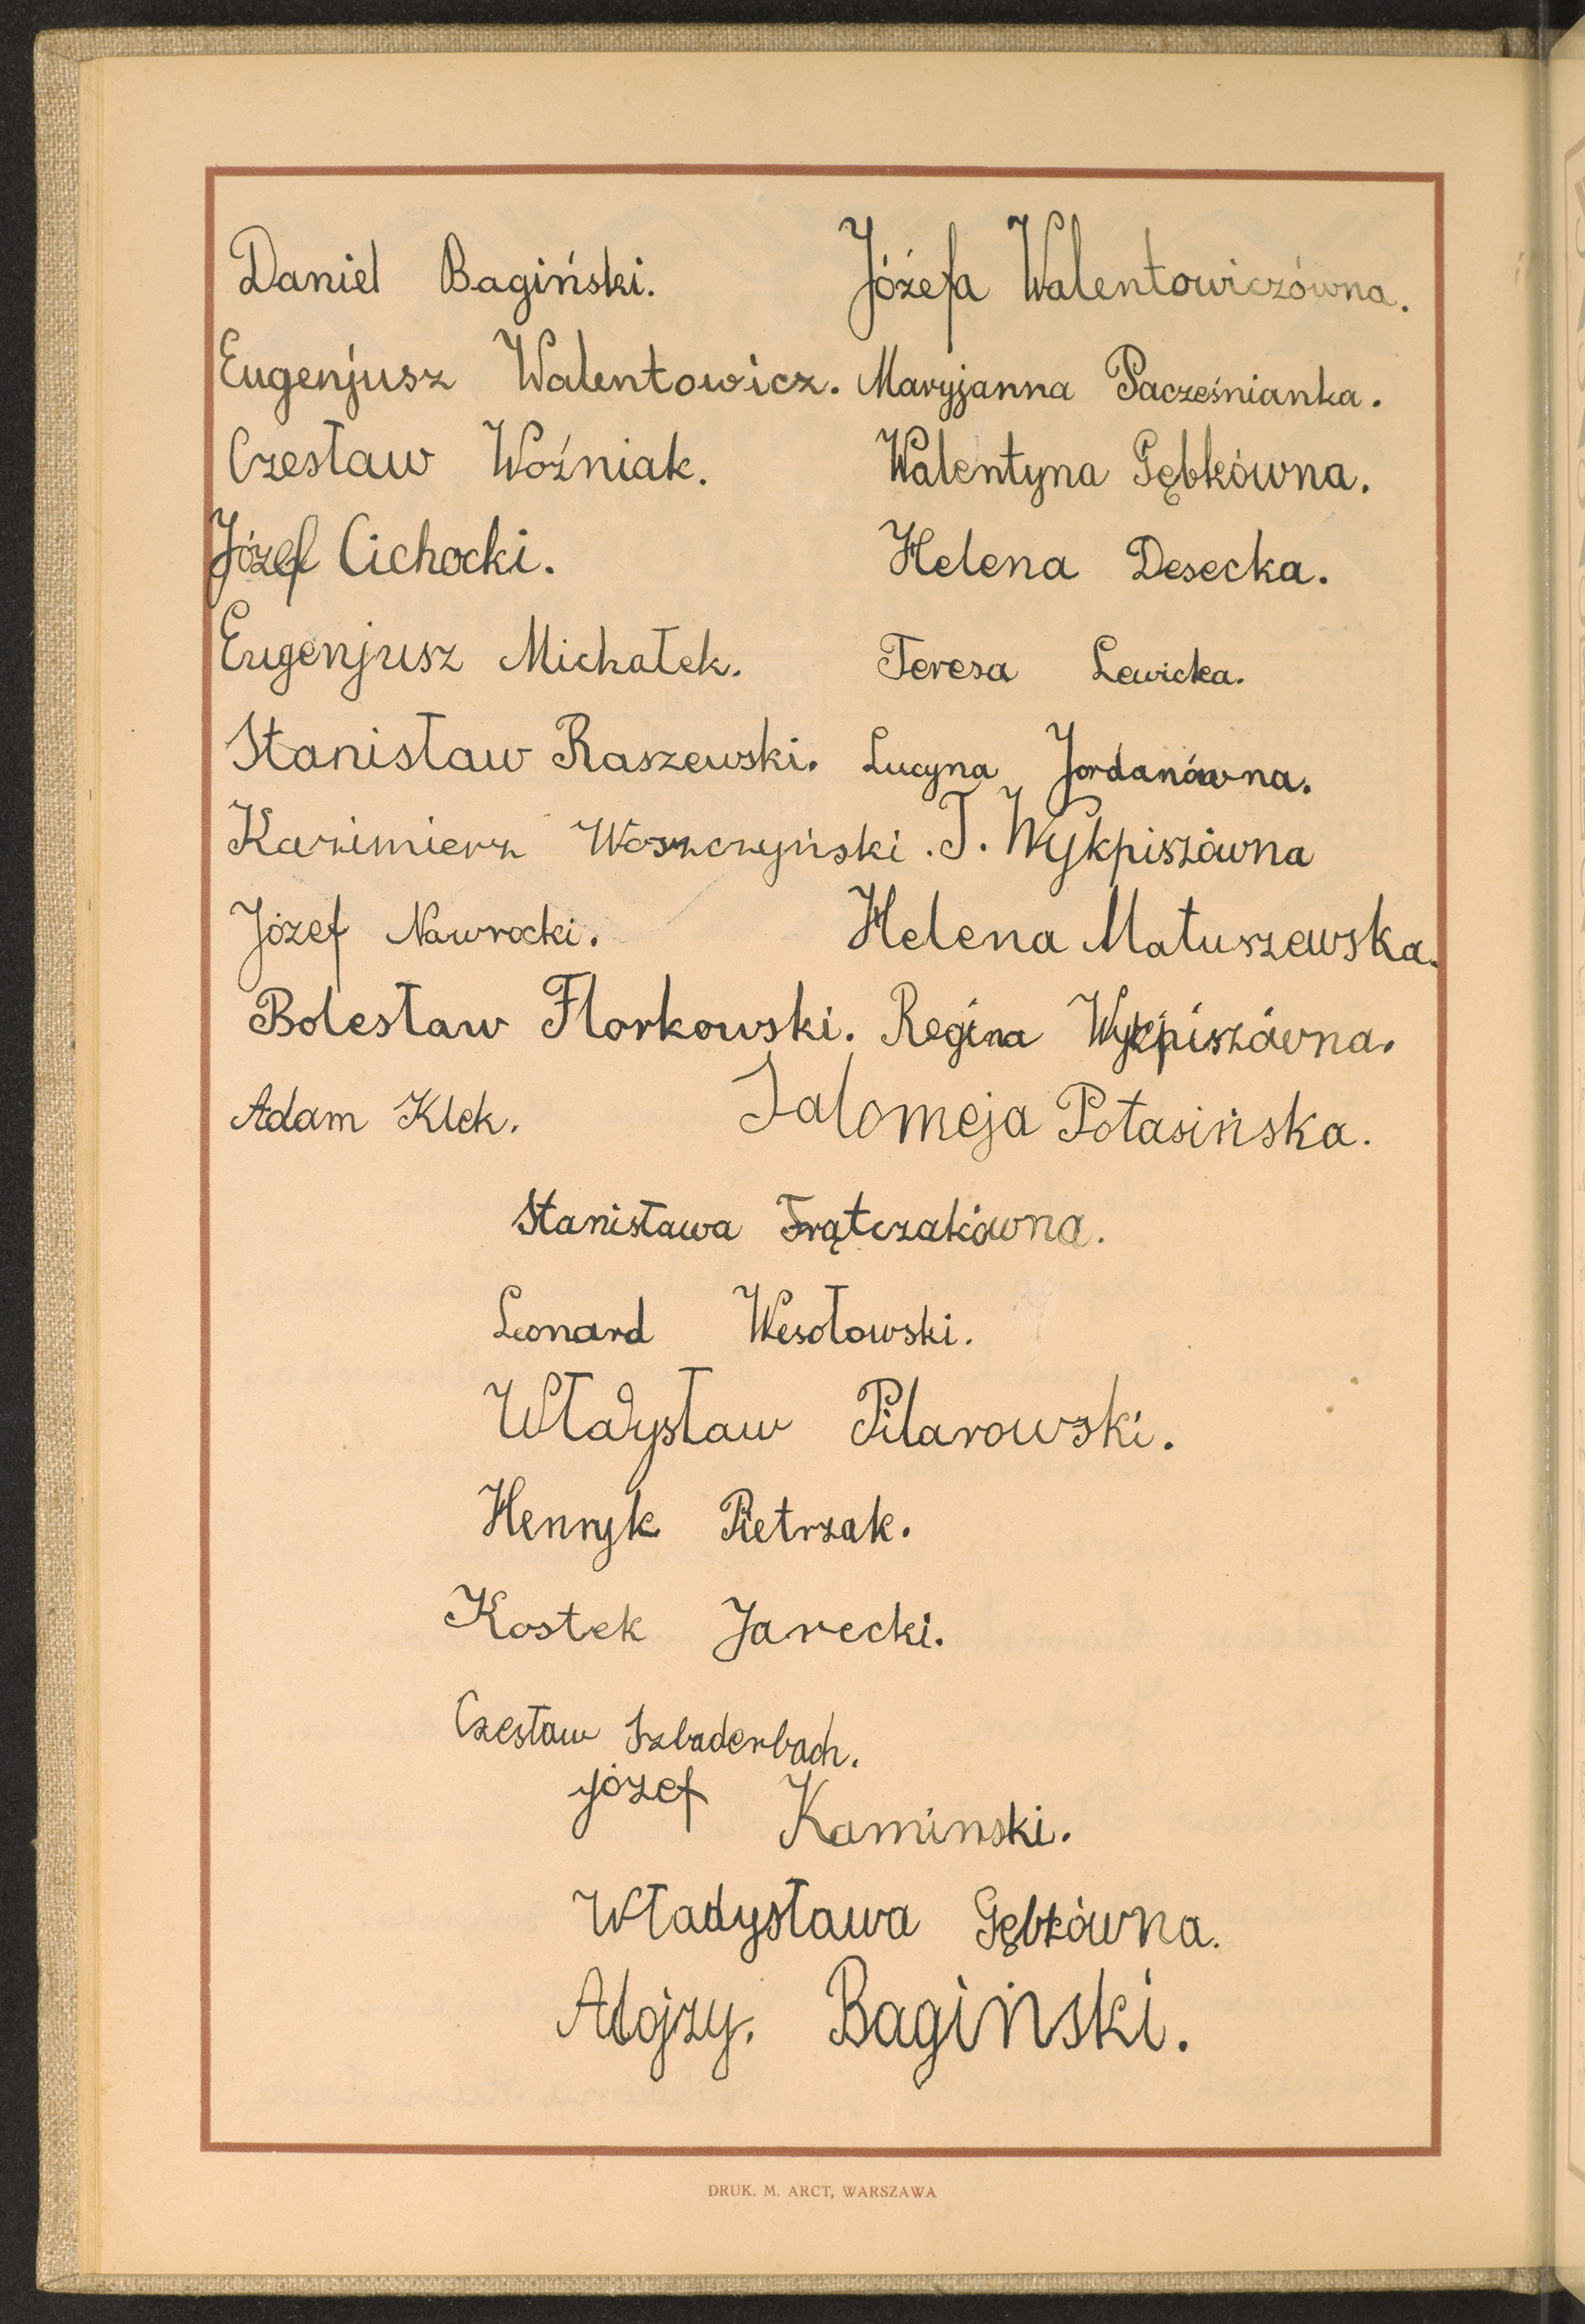 Daniel Bagiński. Józefa Walentowiczówna.
Eugenjusz Walentowicz. Maryjanna Pacześnianka.
Czesław Woźniak. Walentyna Gębkówna.
Józef Cichocki. Helena Desecka.
Eugenjusz Michałek. Teresa Lewicka.
Stanisław Raszewski. Lucyna Jordanówna.
Kazimierz Woszczyński. T. Wykpiszówna
Józef Nawrocki. Helena Matuszewska.
Bolesław Florkowski. Regina Wykpiszówna.
Adam Klek. Salomeja Potasińska.
Stanisława Frątczakówna.
Leonard Wesołowski.
Władysław Pilarowski.
Henryk Pietrzak.
Kostek Jarecki.
Czesław Szladerbach.
Józef Kaminski.
Władysława Gębkówna.
Alojzy. Bagiński.
DRUK. M. ARCT, WARSZAWA